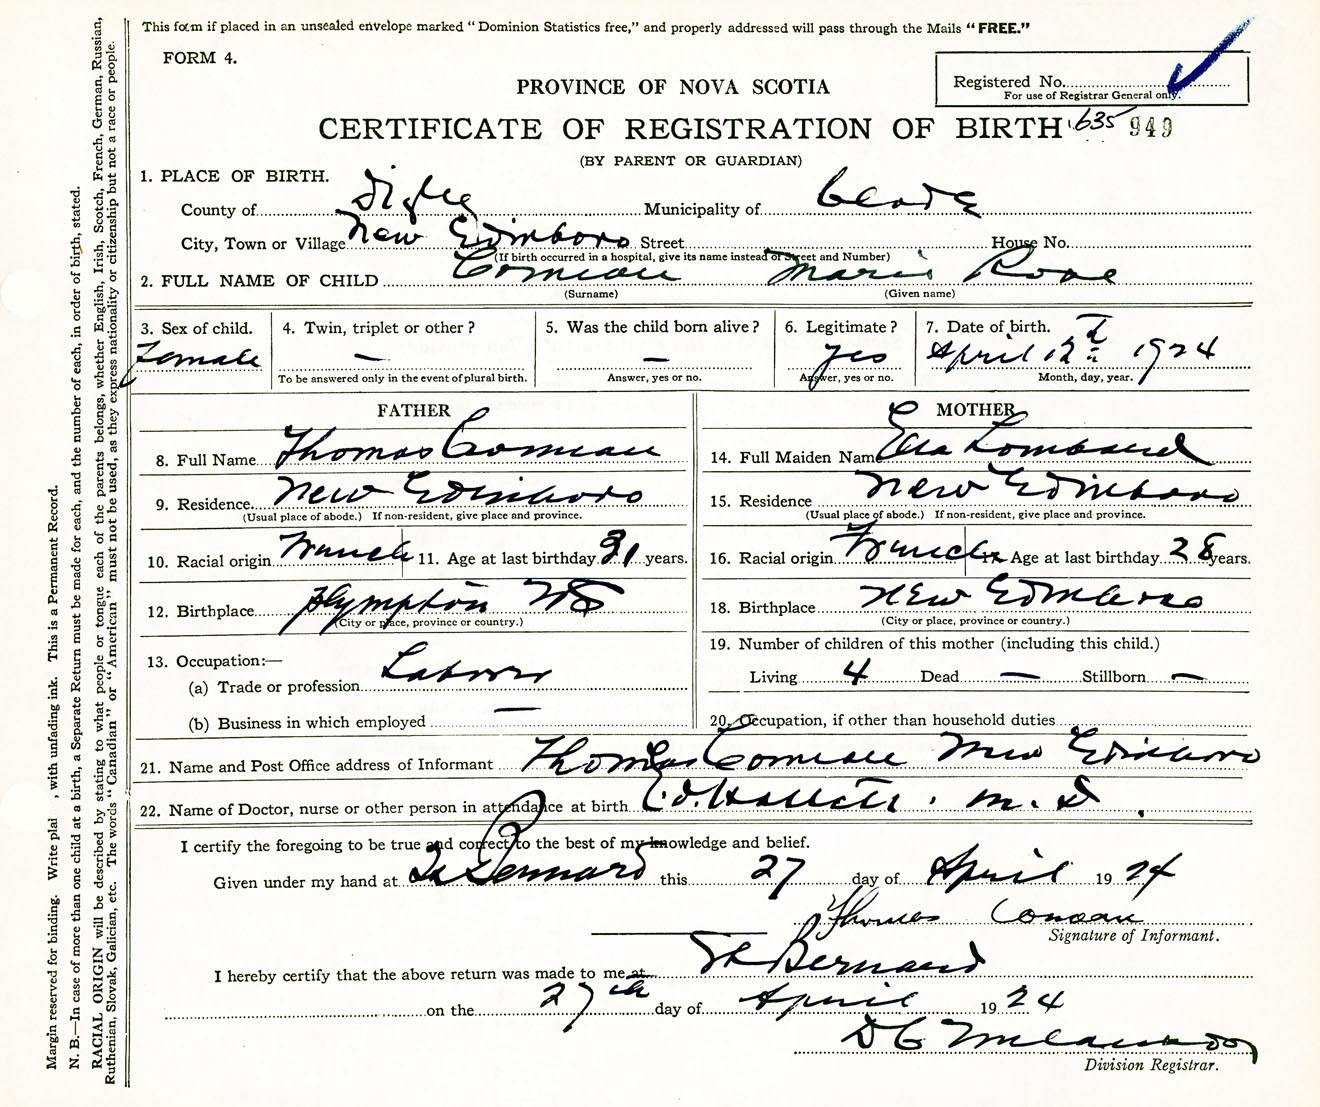 This form if placed in an unsealed envelope marked "Dominion Statistics free," and properly addressed will pass through the Mails "FREE."
FORM 4.
PROVINCE OF NOVA SCOTIA
Registered No.
For use of Registrar General only.
CERTIFICATE OF REGISTRATION OF BIRTH 635 949
(BY PARENT OR GUARDIAN)
1. PLACE OF BIRTH.
County of Digby Municipality of Clare
City, Town or Village New Edinboro Street House No.
(If birth occurred in a hospital, give its name instead of Street and Number)
2. FULL NAME OF CHILD Comeau Marie Rose
(Surname) (Given name)
3. Sex of child. 4. Twin, triplet or other? 5. Was the child born alive? 6. Legitimate? 7. Date of birth.
Female — — Yes April 12th 1924
To be answered only in the event of plural birth. Answer, yes or no. Answer, yes or no. Month, day, year.
FATHER MOTHER
8. Full Name Thomas Comeau 14. Full Maiden Name Lombard
9. Residence New Edinboro 15. Residence New Edinboro
(Usual place of abode.) If non-resident, give place and province. (Usual place of abode.) If non-resident, give place and province.
10. Racial origin French 11. Age at last birthday 31 years. 16. Racial origin French 17. Age at last birthday 28 years.
12. Birthplace Plympton NS 18. Birthplace New Edinboro
(City or place, province or country.) (City or place, province or country.)
19. Number of children of this mother (including this child.)
13. Occupation:—
(a) Trade or profession Laborer Living 4 Dead — Stillborn —
(b) Business in which employed — 20. Occupation, if other than household duties
21. Name and Post Office address of Informant Thomas Comeau New Edinboro
22. Name of Doctor, nurse or other person in attendance at birth M.D.
I certify the foregoing to be true and correct to the best of my knowledge and belief.
Given under my hand at St Bernard this 27 day of April 1924
Thomas Comeau
Signature of Informant.
I hereby certify that the above return was made to me at St Bernard
on the 27th day of April 1924
Division Registrar.
Margin reserved for binding. Write plai , with unfading ink. This is a Permanent Record.
N. B.—In case of more than one child at a birth, a Separate Return must be made for each, and the number of each, in order of birth, stated.
RACIAL ORIGIN will be described by stating to what people or tongue each of the parents belongs, whether English, Irish, Scotch, French, German, Russian,
Ruthenian, Slovak, Galician, etc. The words "Canadian" or "American" must not be used, as they express nationality or citizenship but not a race or people.